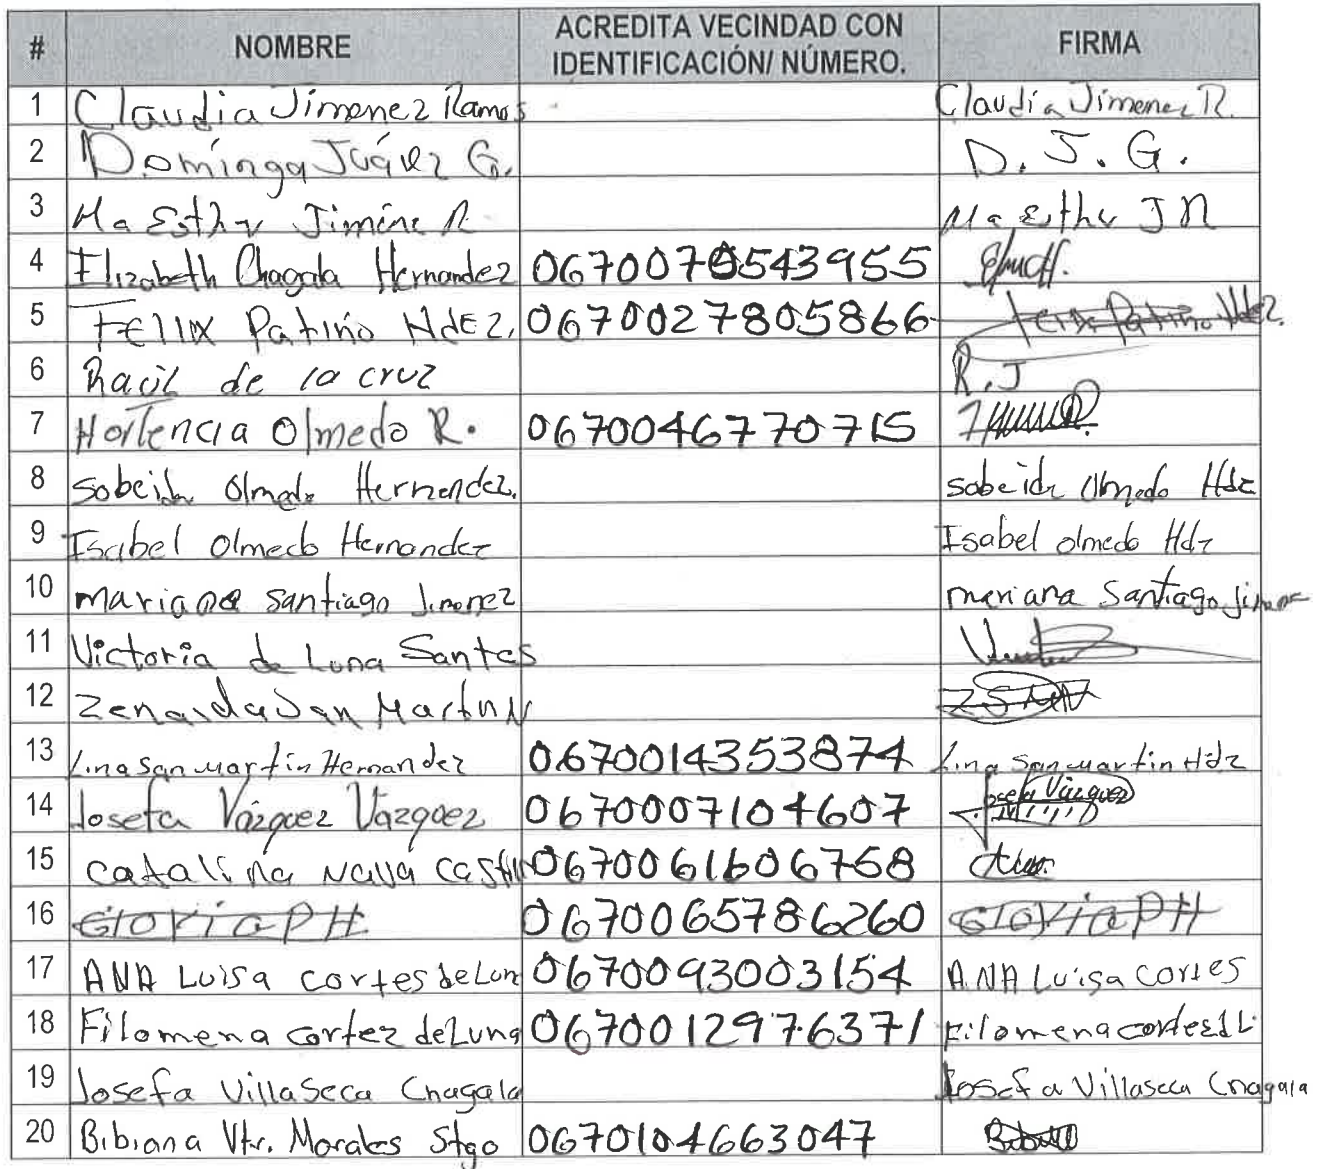 # NOMBRE ACREDITA VECINDAD CON IDENTIFICACIÓN/ NÚMERO. FIRMA
1 Claudia Jimenez Ramos Claudia Jimenez R.
2 Dominga Juárez G. D. J. G.
3 Ma Esther Jiméne R. Ma Esther J R
4 Elizabeth Chagala Hernandez 0670070543955
5 FEllIX Patiño HdEz. 0670027805866 Felix Patiño Hdez.
6 Raúl de la cruz R.J
7 Hortencia Olmedo R. 0670046770715
8 Sobeida Olmedo Hernendez. sobeida Olmedo Hdz
9 Isabel Olmedo Hernandez Isabel olmedo Hdz
10 mariana santiago Jimenez mariana Santiago jimenez
11 Victoria de Luna Santos
12 Zenaida San Martin N ZSMN
13 Lina San martin Hernandez 0670014353874 Lina San martin Hdz
14 Josefa Vázquez Vazquez 0670007104607 Josefa Vázquez
15 catalina nava 0670061606758
16 Gloria P H 0670065786260 Gloria P H
17 ANA Luisa cortes de Lun 0670093003154 ANA Luisa cortes
18 Filomena cortez de Luna 0670012976371 Filomena cortes d L
19 Josefa Villaseca Chagala Josefa Villaseca Chagala
20 Bibiana Vtr. Morales Stgo 0670104663047